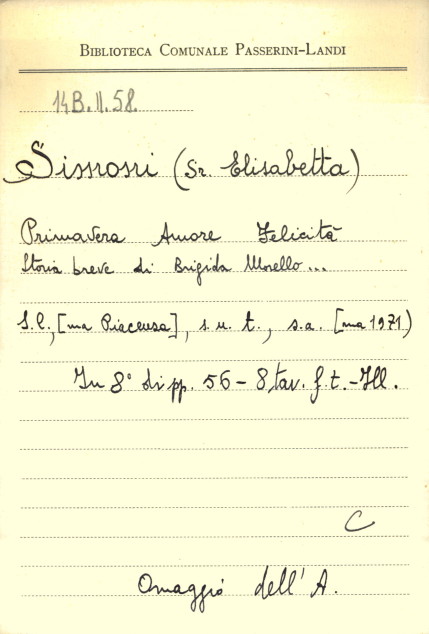 BIBLIOTECA COMUNALE PASSERINI-LANDI
14B.II.58.
(Sr. Elisabetta)
Primavera Amore Felicità
Storia breve di Brigida Morello...
S.l., [ma Piacenza], s.n.t., s.a. [ma 1971)
In 8° di pp. 56-8 tav. f.t.-Ill.
C
Omaggio dell'A.